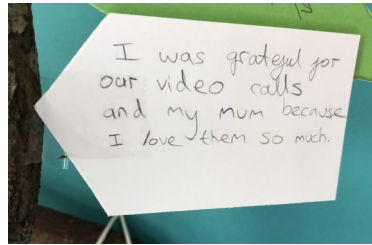 I was grateful for
our video calls
and my mum because
I love them so much.